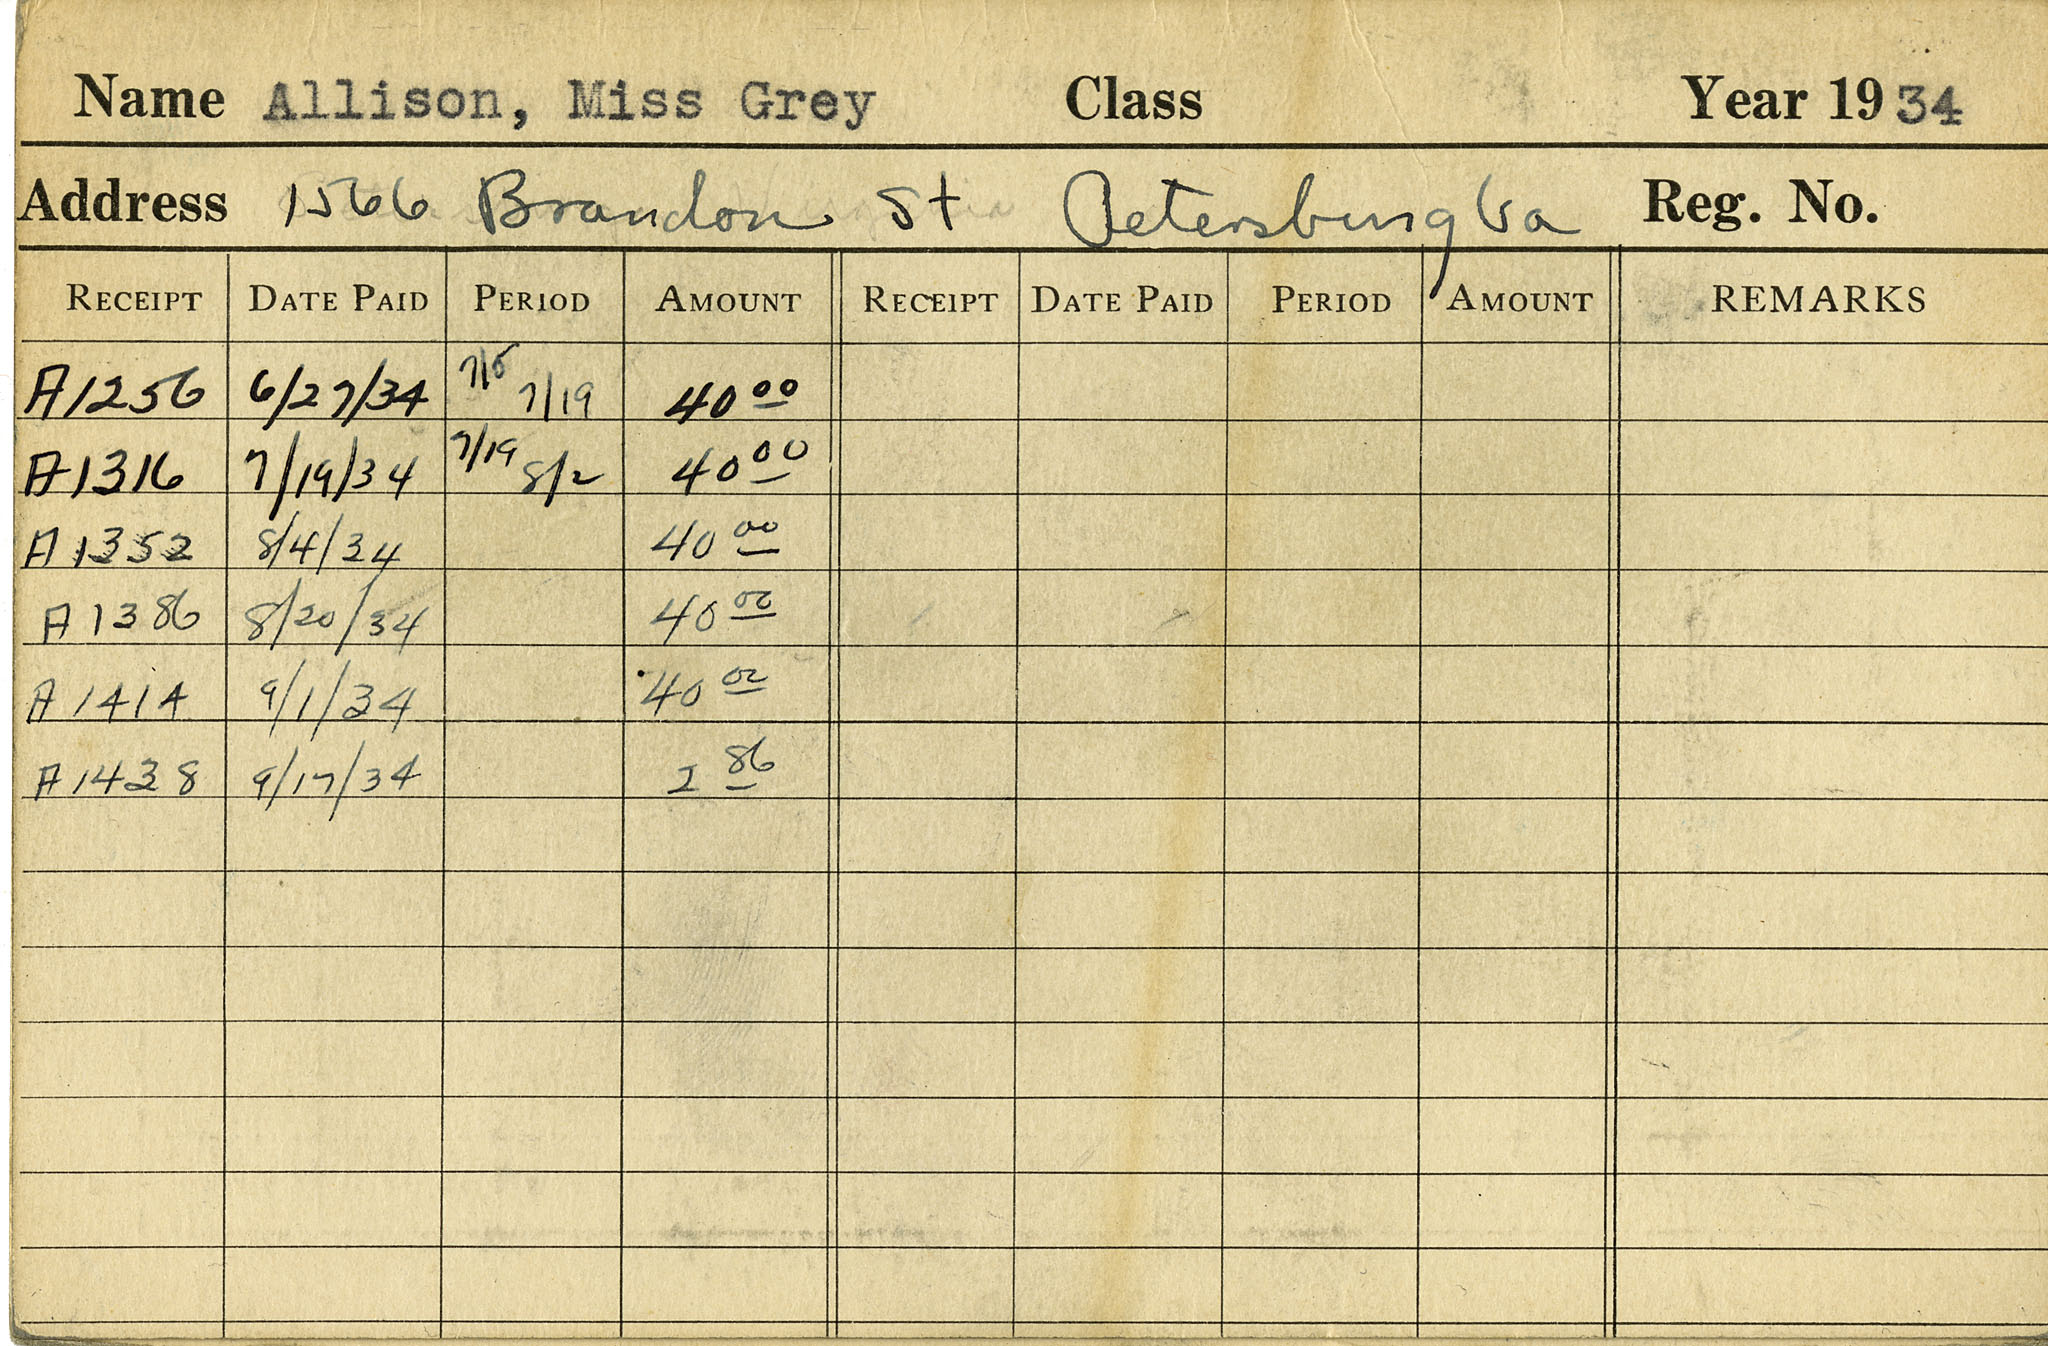 Name Allison, Miss Grey Class Year 1934
Address 1566 Brandon St Petersburg Va Reg. No.
RECEIPT DATE PAID PERIOD AMOUNT RECEIPT DATE PAID PERIOD AMOUNT REMARKS
A1256 6/27/34 7/5 7/19 40 00
A1316 7/19/34 7/19 8/2 40 00
A1352 8/4/34 40 00
A1386 8/20/34 40 00
A1414 9/1/34 40 00
A1438 9/17/34 2 86